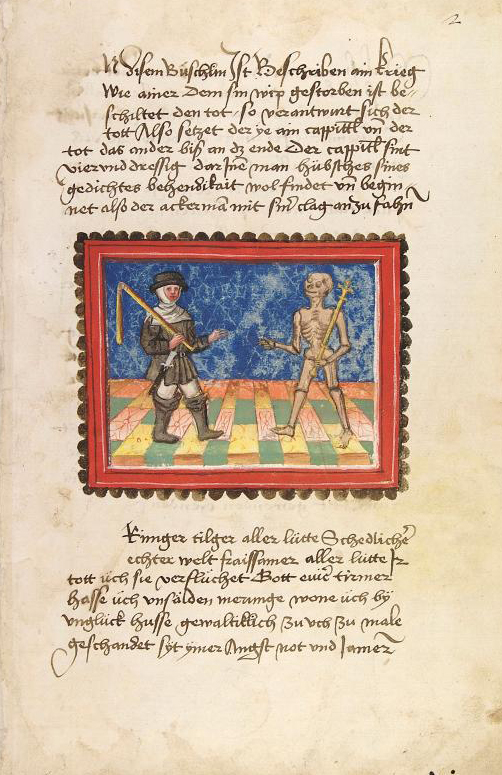 2
N disem Büschlin Ist Beschriben ain krieg
Wie ainer dem sin wip gestorben ist be-
schiltet den tot so verantwurt sich der
tott Also setzet der ye ain cappittl vñ der
tot das ander biß an dz ende Der cappitl sint
vierunddressig dar Jñe man hübsches sines
gedichtes behendikait wol findet vñ begin
net also der ackermã mit sinr clag an zu fahñ
Rimger tilger aller lütte Schedlicher
echter welt fraissamer aller lütte Ir
tott üch sie verflüchet Gott euwr tirmer
hasse üch unsälden merunge wone üch by
Unglück husse gewaltiklich zu üch zu male
geschandet syt ymer Angst not und Jamer